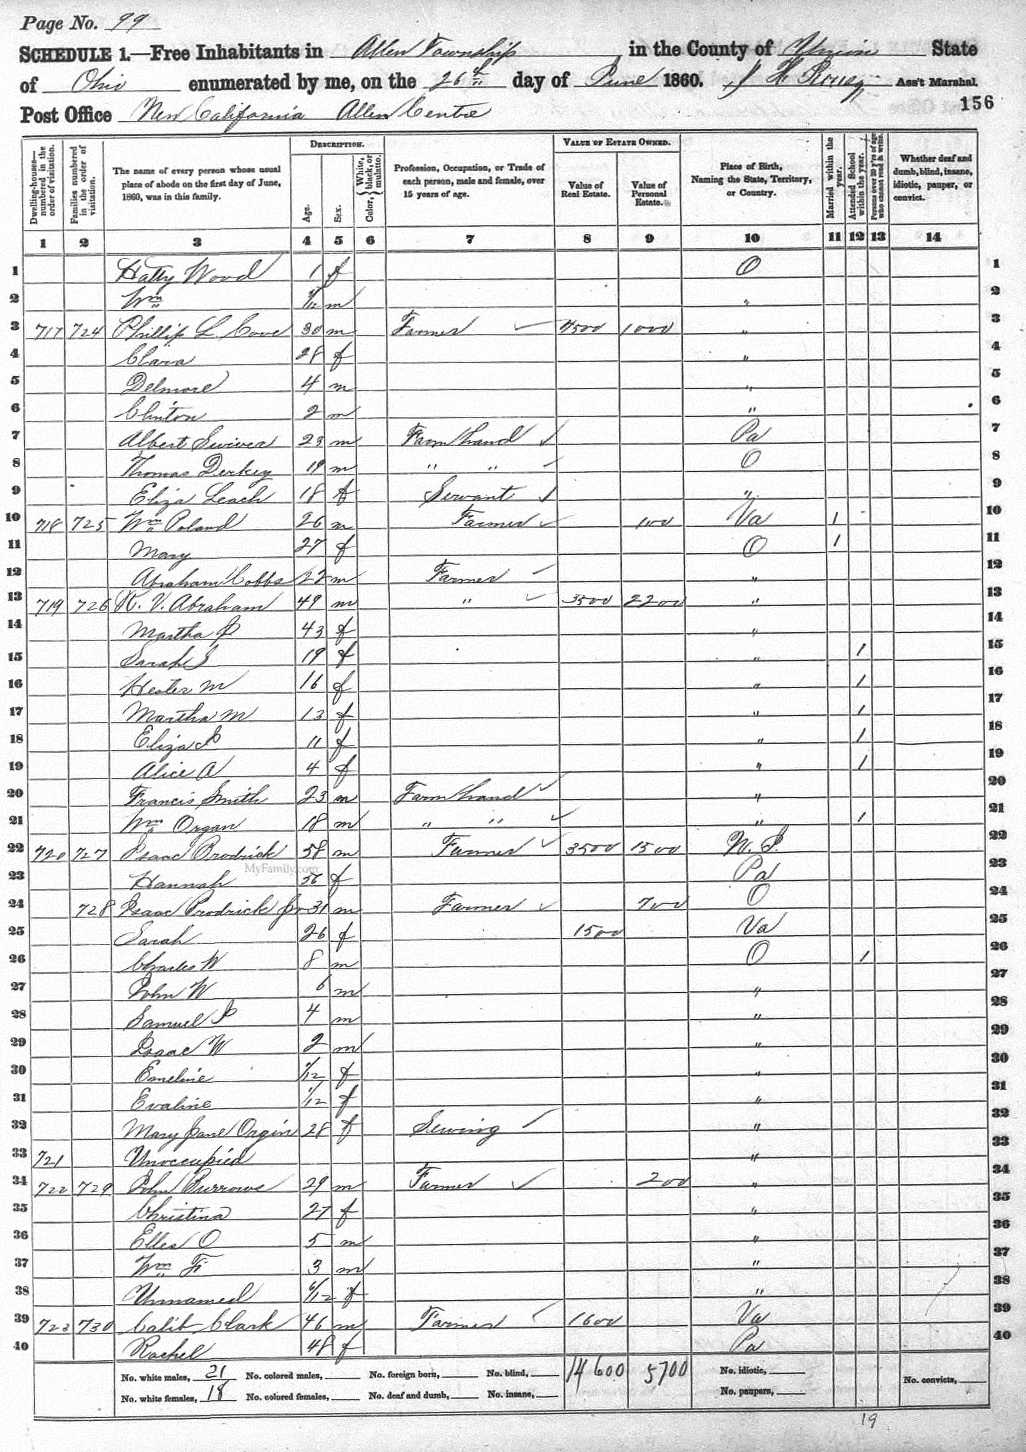 Page No. 99
SCHEDULE 1.—Free Inhabitants in Allen Township in the County of Union State
of Ohio enumerated by me, on the 26th day of June 1860. J H Ass't Marshal.
156
Post Office New California Allen Centre
Dwelling-houses—numbered in the order of visitation.
Families numbered in the order of visitation.
The name of every person whose usual place of abode on the first day of June, 1860, was in this family.
DESCRIPTION.
Age.
Sex.
Color, White, black, or mulatto.
Profession, Occupation, or Trade of each person, male and female, over 15 years of age.
VALUE OF ESTATE OWNED.
Value of Real Estate.
Value of Personal Estate.
Place of Birth, Naming the State, Territory, or Country.
Married within the year.
Attended School within the year.
Persons over 20 y'rs of age who cannot read & write.
Whether deaf and dumb, blind, insane, idiotic, pauper, or convict.
1 2 3 4 5 6 7 8 9 10 11 12 13 14
1 Hatty Wood 1 f O 1
2 Wm m " 2
3 717 724 Phillip L 30 m Farmer 7500 1000 " 3
4 Clara 28 f " 4
5 Delmore 4 m " 5
6 Clinton 2 m " 6
7 Albert 23 m Farm hand Pa 7
8 Thomas 19 m " " O 8
9 Eliza Leach 18 f Servant " 9
10 718 725 Wm Poland 26 m Farmer 100 Va 1 10
11 Mary 27 f O 1 11
12 Abraham Cobbs 22 m Farmer " 12
13 719 726 R. V. Abraham 49 m " 3500 2200 " 13
14 Martha J 43 f " 14
15 Sarah J 19 f " 1 15
16 Hester M 16 f " 1 16
17 Martha M 13 f " 1 17
18 Eliza J 11 f " 1 18
19 Alice A 4 f " 1 19
20 Francis Smith 23 m Farm hand " 20
21 Wm Organ 18 m " " " 1 21
22 720 727 Isaac Brodrick 58 m Farmer 3500 1500 N. J. 22
23 Hannah 56 f Pa 23
24 728 Isaac Brodrick Jr 31 m Farmer 700 O 24
25 Sarah 26 f 1500 Va 25
26 Charles W 8 m O 1 26
27 John W 6 m " 27
28 Samuel J 4 m " 28
29 Isaac W 2 m " 29
30 Emeline 1/12 f " 30
31 Evaline 1/12 f " 31
32 Mary Jane Orgin 28 f Sewing " 32
33 721 Unoccupied " 33
34 722 729 John Burrows 29 m Farmer 200 " 34
35 Christina 27 f " 35
36 O 5 m " 36
37 Wm F 3 m " 37
38 Unnamed 6/12 f " 38
39 723 730 Calib Clark 46 m Farmer 1600 Va 39
40 Rachel 48 f Pa 40
MyFamily.com
No. white males, 21 No. colored males, No. foreign born, No. blind, 14600 5700 No. idiotic,
No. convicts,
No. white females, 18 No. colored females, No. deaf and dumb, No. insane, No. paupers,
19